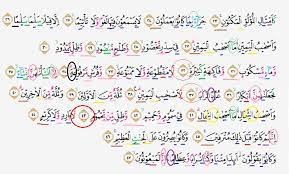 كَأَمْثَالِ اللُّؤْلُؤِ الْمَكْنُونِ ٢٣ جَزَاءً بِمَا كَانُوا يَعْمَلُونَ ٢٤ لَا يَسْمَعُونَ فِيهَا لَغْوًا وَلَا تَأْثِيمًا ٢٥ إِلَّا قِيلًا سَلَامًا سَلَامًا ٢٦
وَأَصْحَابُ الْيَمِينِ مَا أَصْحَابُ الْيَمِينِ ٢٧ فِي سِدْرٍ مَخْضُودٍ ٢٨ وَطَلْحٍ مَنْضُودٍ ٢٩ وَظِلٍّ مَمْدُودٍ ٣٠
وَمَاءٍ مَسْكُوبٍ ٣١ وَفَاكِهَةٍ كَثِيرَةٍ ٣٢ لَا مَقْطُوعَةٍ وَلَا مَمْنُوعَةٍ ٣٣ وَفُرُشٍ مَرْفُوعَةٍ ٣٤ إِنَّا أَنْشَأْنَاهُنَّ إِنْشَاءً ٣٥
فَجَعَلْنَاهُنَّ أَبْكَارًا ٣٦ عُرُبًا أَتْرَابًا ٣٧ لِأَصْحَابِ الْيَمِينِ ٣٨ ثُلَّةٌ مِنَ الْأَوَّلِينَ ٣٩ وَثُلَّةٌ مِنَ الْآخِرِينَ ٤٠
وَأَصْحَابُ الشِّمَالِ مَا أَصْحَابُ الشِّمَالِ ٤١ فِي سَمُومٍ وَحَمِيمٍ ٤٢ وَظِلٍّ مِنْ يَحْمُومٍ ٤٣ لَا بَارِدٍ وَلَا كَرِيمٍ ٤٤
إِنَّهُمْ كَانُوا قَبْلَ ذَلِكَ مُتْرَفِينَ ٤٥ وَكَانُوا يُصِرُّونَ عَلَى الْحِنْثِ الْعَظِيمِ ٤٦
وَكَانُوا يَقُولُونَ أَئِذَا مِتْنَا وَكُنَّا تُرَابًا وَعِظَامًا أَإِنَّا لَمَبْعُوثُونَ ٤٧